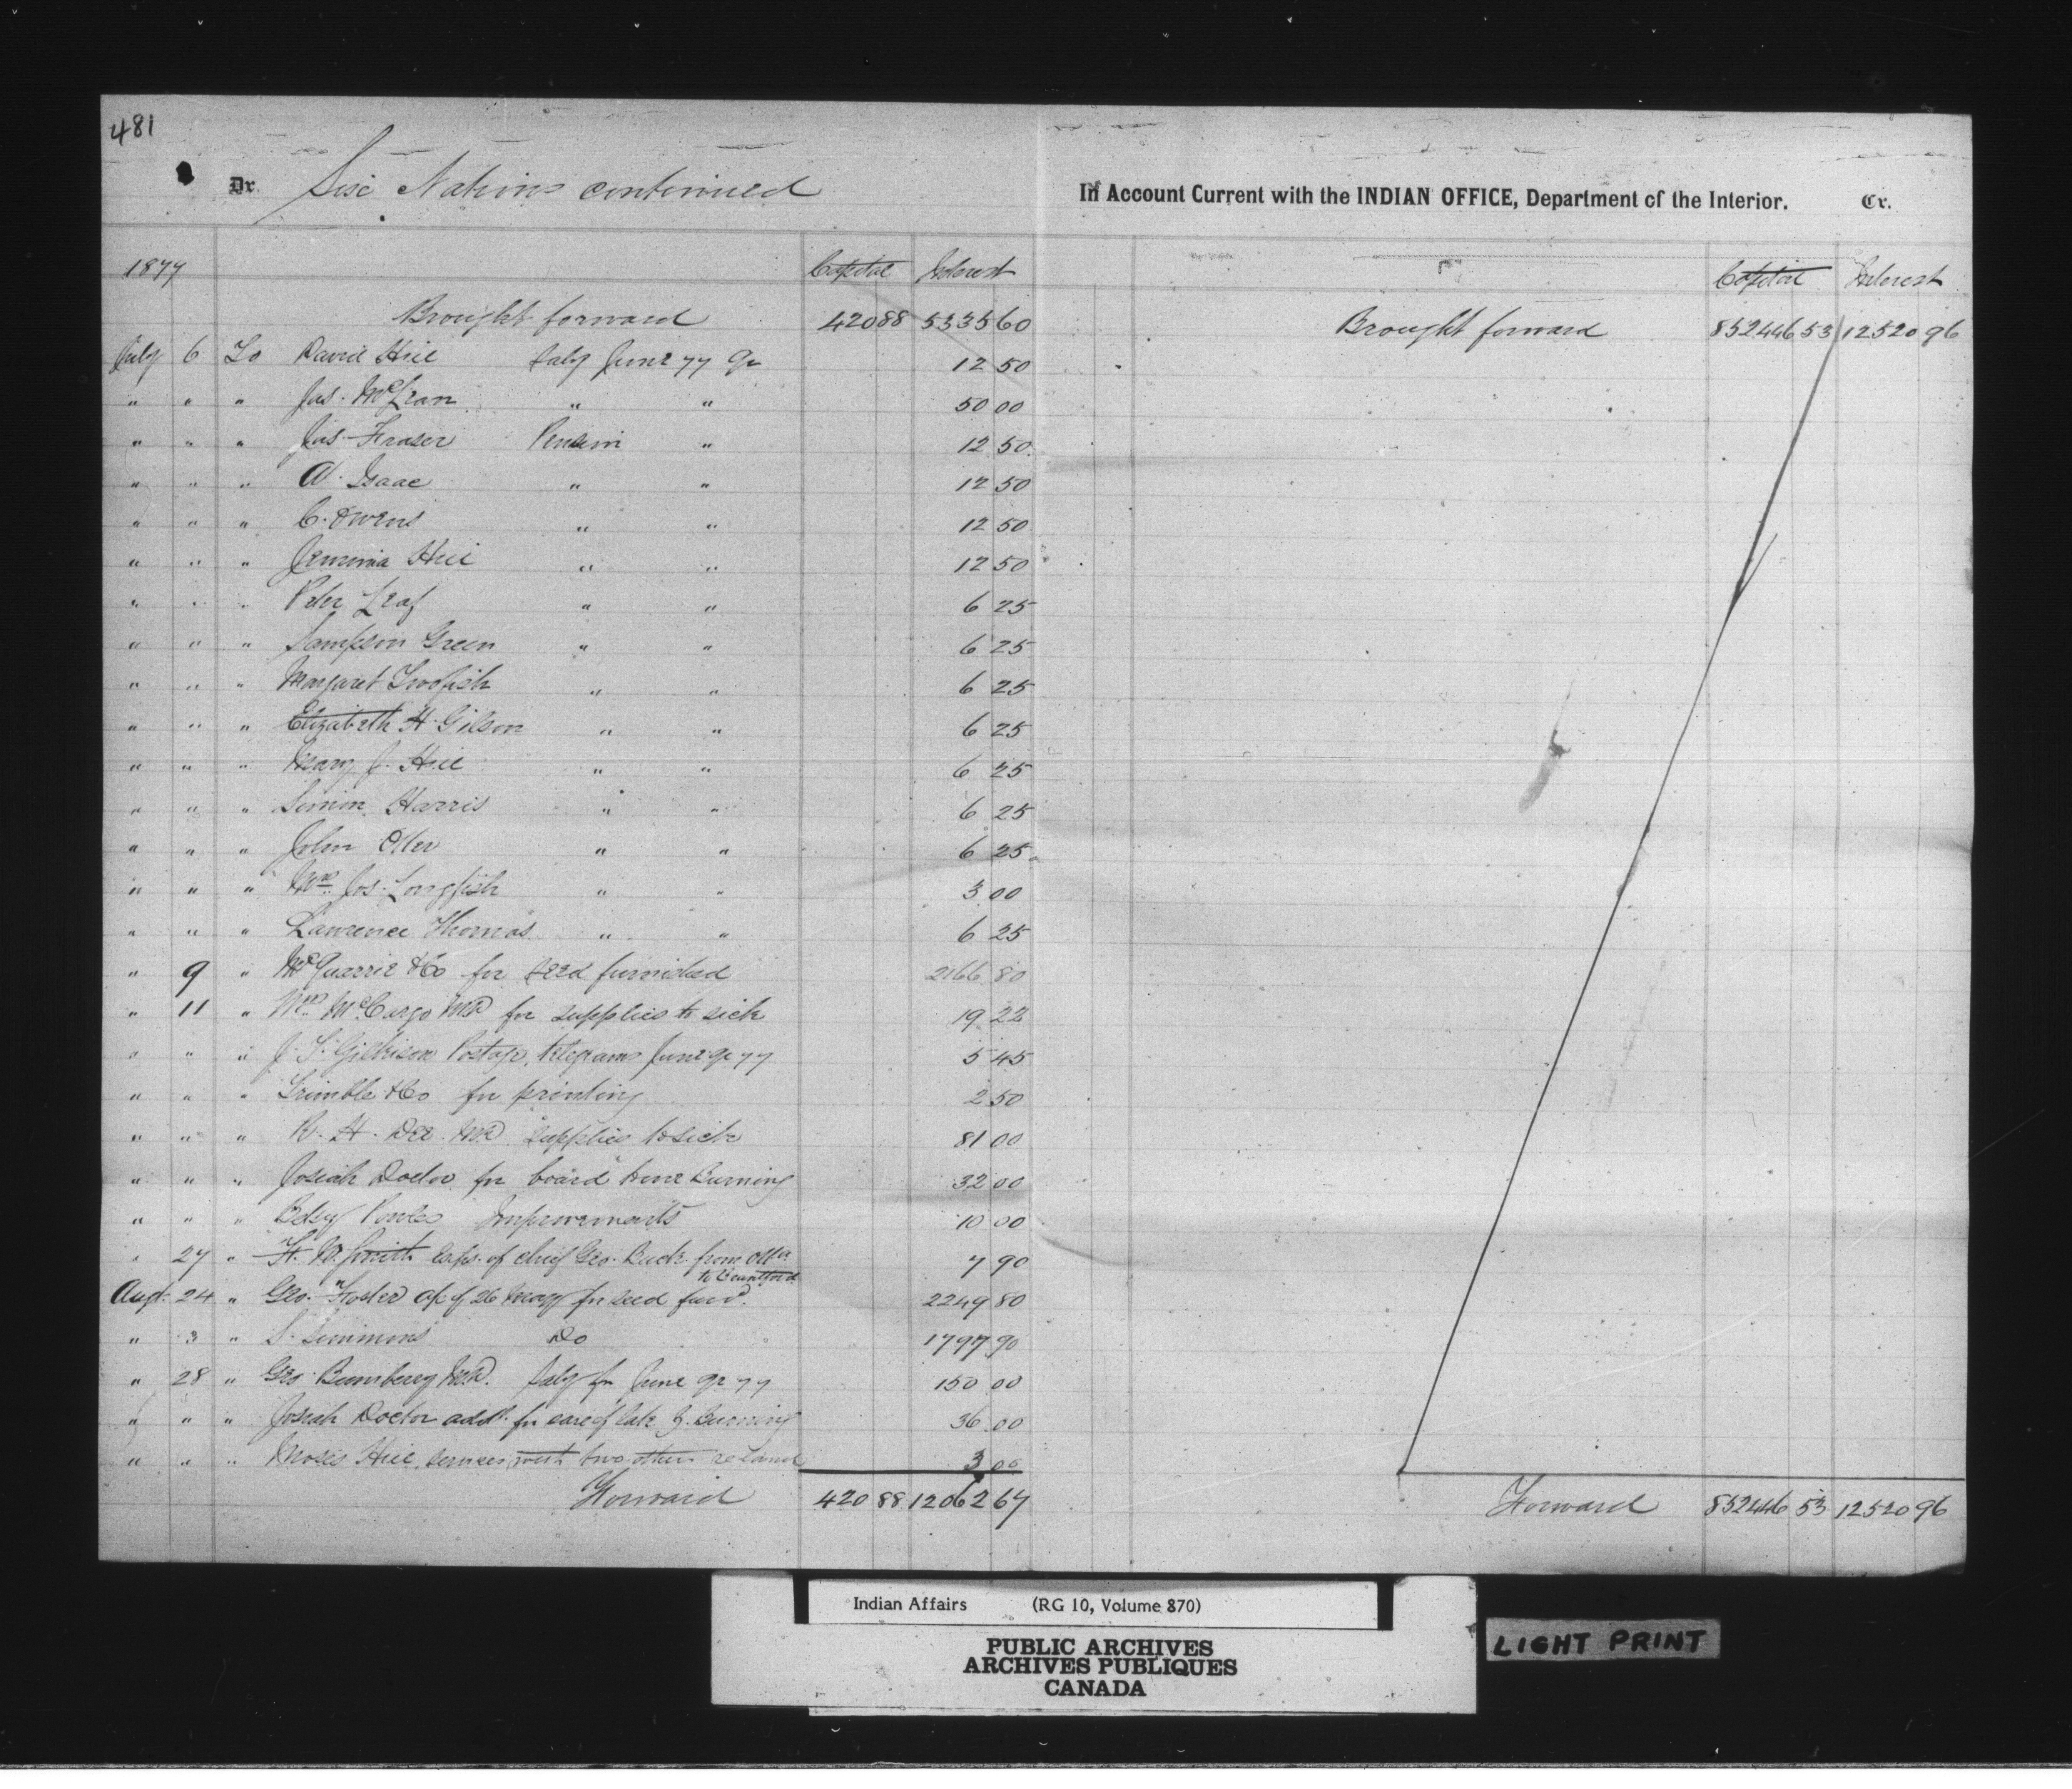 481
Dr. Six Nations continued
In Account Current with the INDIAN OFFICE, Department of the Interior. Cr.
1877 Capital Interest
Capital Interest
Brought forward 420 88 5335 60
Brought forward 852446 53 12520 96
July 6 To David Hill Saly June 77 Qr 12 50
" " " Jas. McLean " " 50 00
" " " Jas. Fraser Pension " 12 50
" " " A. Isaac " " 12 50
" " " C. Owens " " 12 50
" " " Jemima Hill " " 12 50
" " " Peter Leaf " " 6 25
" " " Sampson Green " " 6 25
" " " Margaret Twofish " " 6 25
" " " Elizabeth H. Gilson " " 6 25
" " " Mary J. Hill " " 6 25
" " " Simon Harris " " 6 25
" " " John Oter " " 6 25
" " " Mrs. Jos. Longfish " " 3 00
" " " Lawrence Thomas " " 6 25
" 9 " McQuarrie & Co for seed furnished 2166 80
" 11 " Wm McCargo MD for supplies to sick 19 22
" " " J. T. Gilkison Postage, telegrams June qr 77 5 45
" " " Trimble & Co for printing 2 50
" " " R. H. Dee MD supplies to sick 81 00
" " " Josiah Doctor for board Burning 32 00
" " " Betsy Powles Improvements 10 00
" 27 " H. W. Smith Exps. of chief Geo. Buck from Ottwa
to Brantford 7 90
Augt. 24 " Geo. Foster a/c of 26 May for seed furnd. 2249 80
" 3 " S. Simmons Do 1797 90
" 28 " Geo. Bumberry MD. Saly for June qr 77 150 00
" " " Josiah Doctor addl. for care of late J. Burning 36 00
" " " Moses Hill, services with two others re land 3 00
Forward 420 88 12062 67
Forward 852446 53 12520 96
Indian Affairs (RG 10, Volume 870)
PUBLIC ARCHIVES
ARCHIVES PUBLIQUES
CANADA
LIGHT PRINT